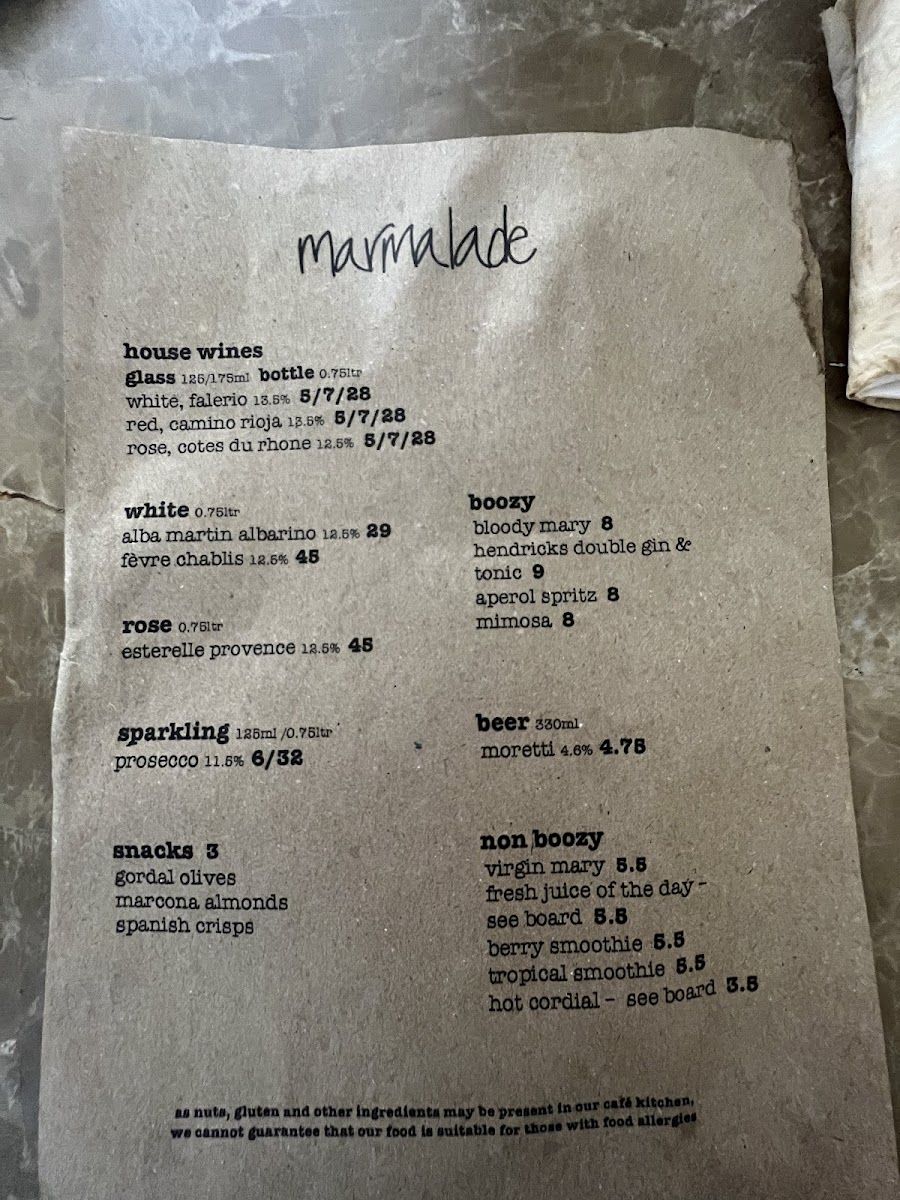 marmalade
house wines
glass 125/175ml bottle 0.75ltr
white, falerio 13.5% 5/7/28
red, camino rioja 13.5% 5/7/28
rose, cotes du rhone 12.5% 5/7/28
white 0.75ltr
alba martin albarino 12.5% 29
fèvre chablis 12.5% 45
rose 0.75ltr
esterelle provence 12.5% 45
sparkling 125ml /0.75ltr
prosecco 11.5% 6/32
snacks 3
gordal olives
marcona almonds
spanish crisps
boozy
bloody mary 8
hendricks double gin &
tonic 9
aperol spritz 8
mimosa 8
beer 330ml
moretti 4.6% 4.75
non boozy
virgin mary 5.5
fresh juice of the day -
see board 5.5
berry smoothie 5.5
tropical smoothie 5.5
hot cordial - see board 3.5
as nuts, gluten and other ingredients may be present in our café kitchen,
we cannot guarantee that our food is suitable for those with food allergies